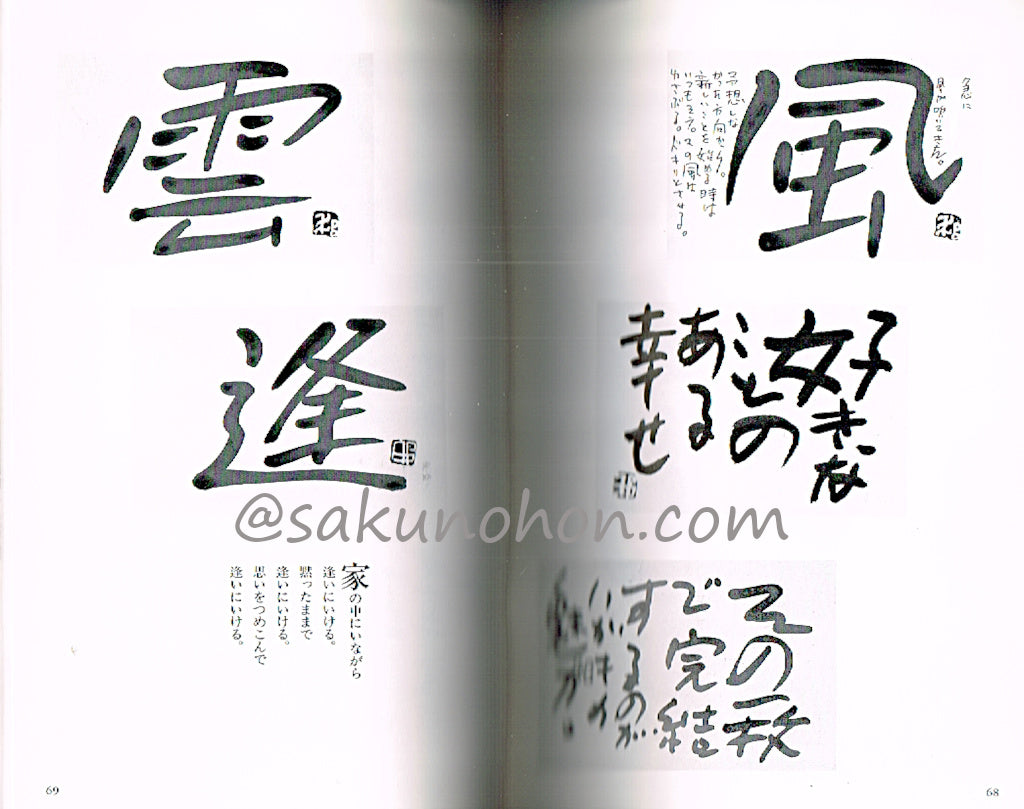 急に
風が吹いてきた。
風
予想しな
かった方向から。
新しいことを始める時は
いつもそう。その風は
ゆさぶる。ドキリとさせる。
好きな
ことの
ある
幸せ
その一枚
で完結
するのが
68
雲
逢
家の中にいながら
逢いにいける。
黙ったままで
逢いにいける。
思いをつめこんで
逢いにいける。
69
@sakunohon.com